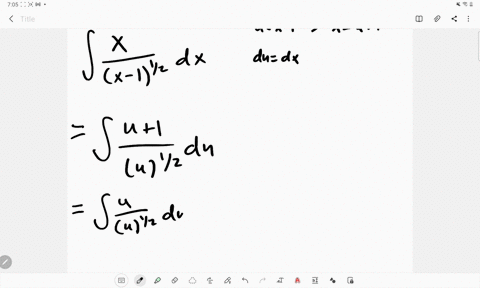 7:05
Title
∫ x/(x-1)^1/2 dx
du=dx
= ∫ u+1/(u)^1/2 du
= ∫ u/(u)^1/2 du